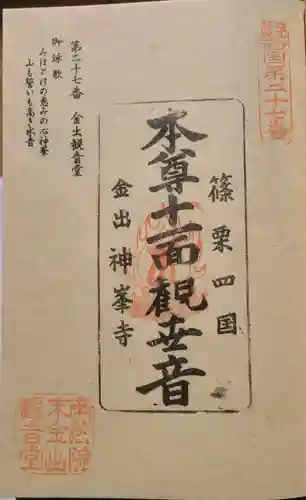 篠栗四国第二十七番
篠栗四国
本尊十一面観世音
金出 神峯寺
第二十七番 金出観音堂
御詠歌
みほとけの恵みの心神峯
山も誓いも高き水音
金出
観音堂